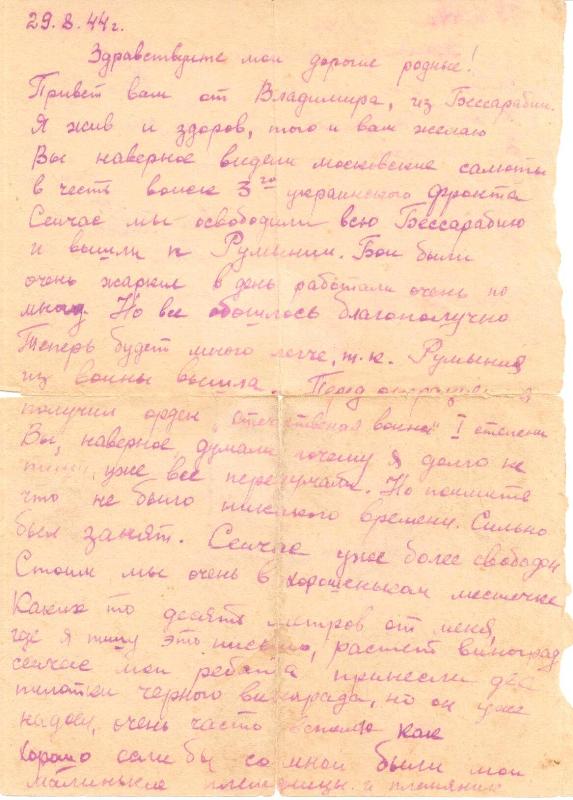 29.8.44г.
Здравствуйте мои дорогие родные!
Привет вам от Владимира, из Бессарабии.
Я жив и здоров, того и вам желаю
Вы наверное видели московские салюты
в честь войск 3го украинского фронта
Сейчас мы освободили всю Бессарабию
и вышли к Румынии. Бои были
очень жаркие в день работали очень по
многу. Но все обошлось благополучно
Теперь будет много легче, т.к. Румыния
из войны вышла. Перед
получил орден "отечественная война" I степени
Вы, наверное, думали почему я долго не
пишу, уже все передумали. Но поймите
что не было никакого времени. Сильно
был занят. Сейчас уже более свободен
Стоим мы очень в хорошеньком местечке
Каких то десять метров от меня,
где я пишу это письмо, растет виноград
сейчас мои ребята принесли две
пилотки черного винограда, но он уже
надоел, очень часто как
хорошо если бы со мной были мои
малинькие племянницы и племяник